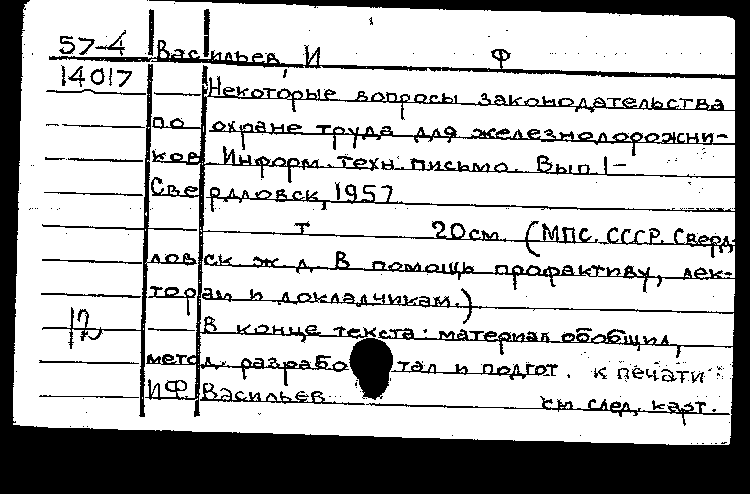 57-4 Васильев, И Ф
14017
Некоторые вопросы законодательства
по охране труда для железнодорожни-
ков Информ. техн. письмо. Вып 1-
Свердловск, 1957
т 20см. (МПС. СССР. Сверд-
ловск ж д. В помощь профактиву, лек-
торам и докладчикам.)
12
В конце текста: материал обобщил,
метод. разработал и подгот. к печати
И.Ф. Васильев см. след. карт.